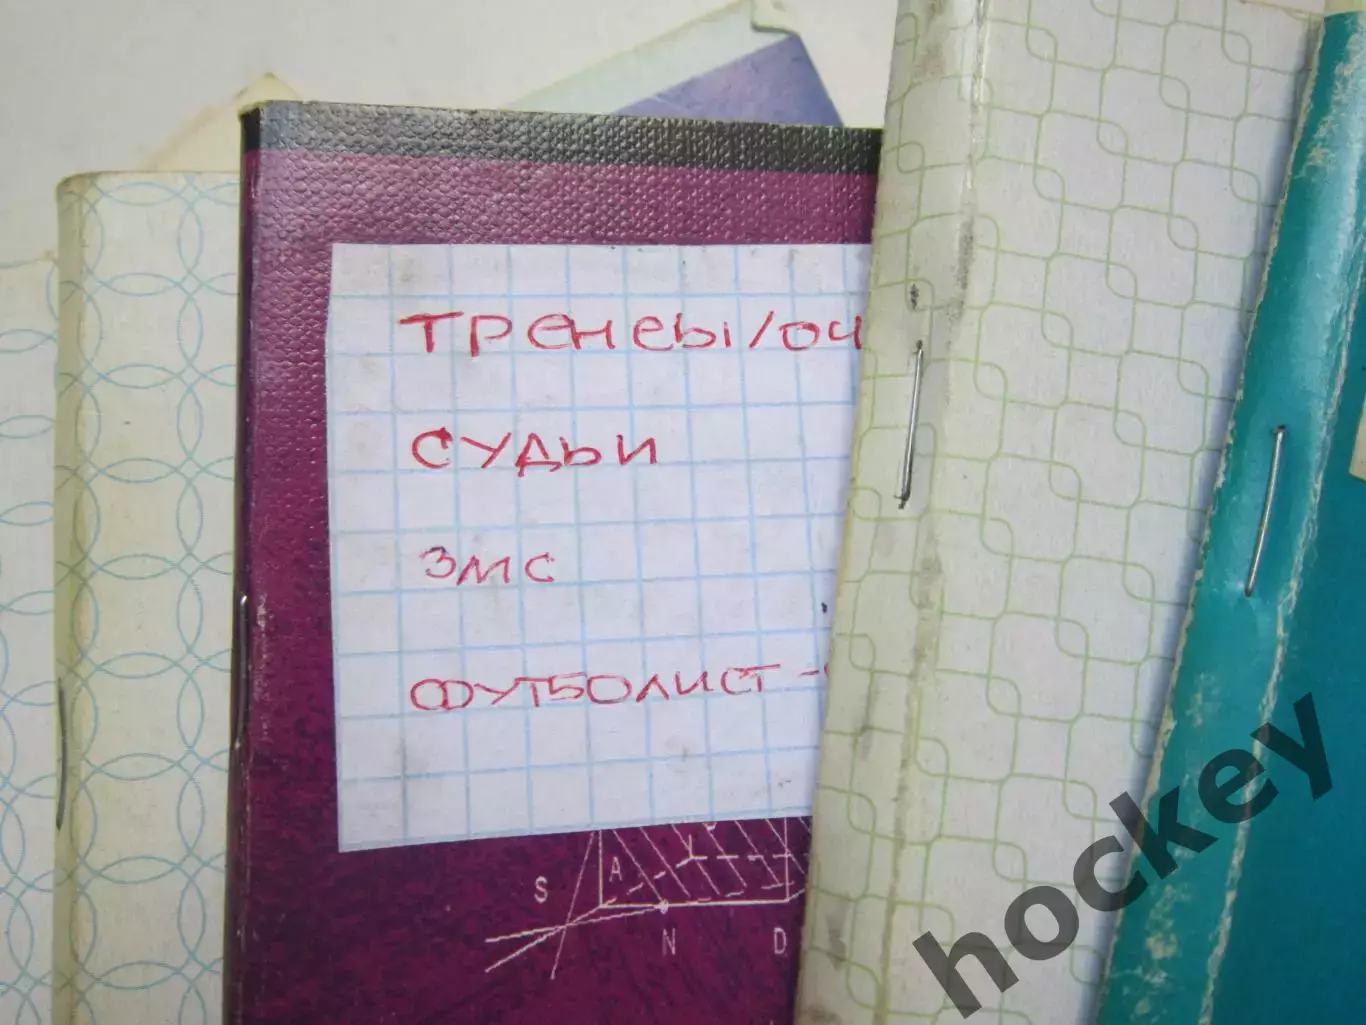 ТРЕНЕРЫ/ОЧ
СУДЬИ
ЗМС
ФУТБОЛИСТ-
A
S
N
D
hockey